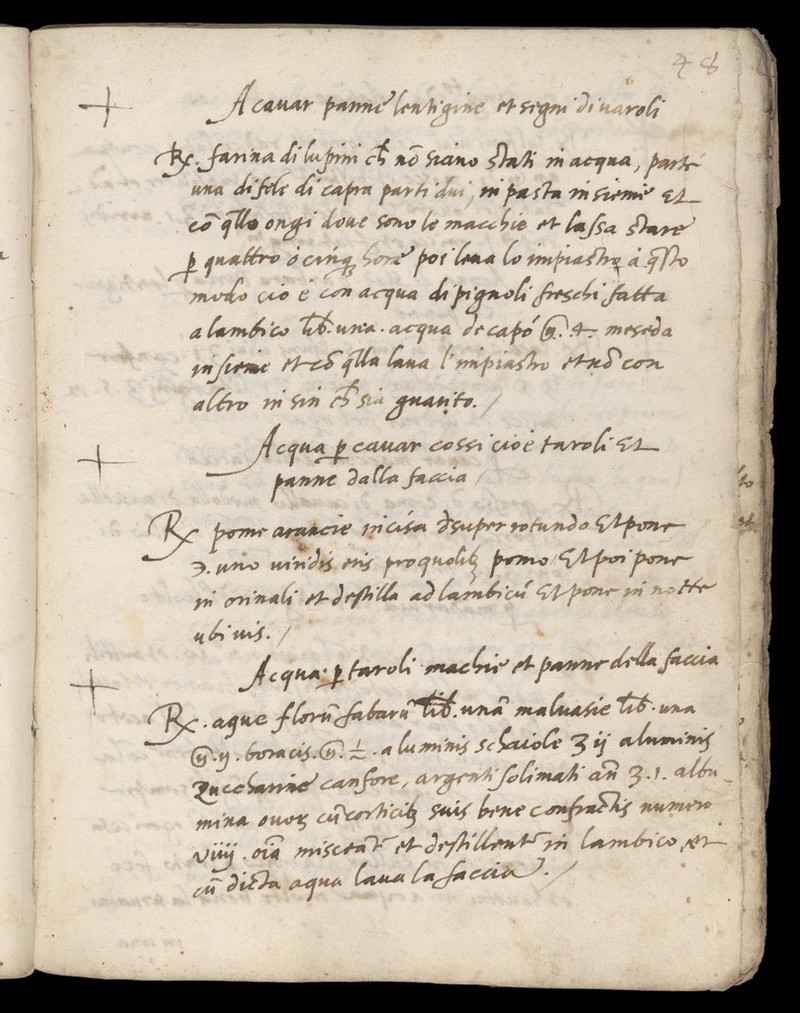 48
A cavar panne lentigine et segni di varoli
Rx. farina di lupini ch̄ nō siano stati in acqua, parte
una di fele di capra parti dui, inpasta insieme Et
cō q̄llo ongi dove sono le macchie et lassa stare
ꝑ quattro ò cinqꝫ hore poi leva lo impiastro à q̄sto
modo cio è con acqua di pignoli freschi fatta
a lambico lib. una. acqua de capó ℥. 4. meseda
insieme et cō q̄lla lava l'impiastro et nō con
altro in sin ch̄ sia guarito. /
Acqua ꝑ cavar cossi cioè taroli Et
panne dalla faccia /
Rx pome arancie incisa dsuper rotundo Et pone
℈. uno viridis eris pro quolibꝫ pomo Et poi pone
in orinali et destilla ad lambicū Et pone in notte
ubi vis. /
Acqua ꝑ taroli machie et panne della faccia
Rx. aque florū fabarū lib. unā malvasie lib. una
℥. ij. boracis. ℥. ½. aluminis schaiole ʒ ij aluminis
Zuccharine canfore, argenti solimati an̄ ʒ. 1. albu-
mina ovoꝝ cū corticibꝫ suis bene confractis numero
viiij. oīa misceāt̄ et destillent̄ in lambico, et
cū dicta aqua lava la faccia. /